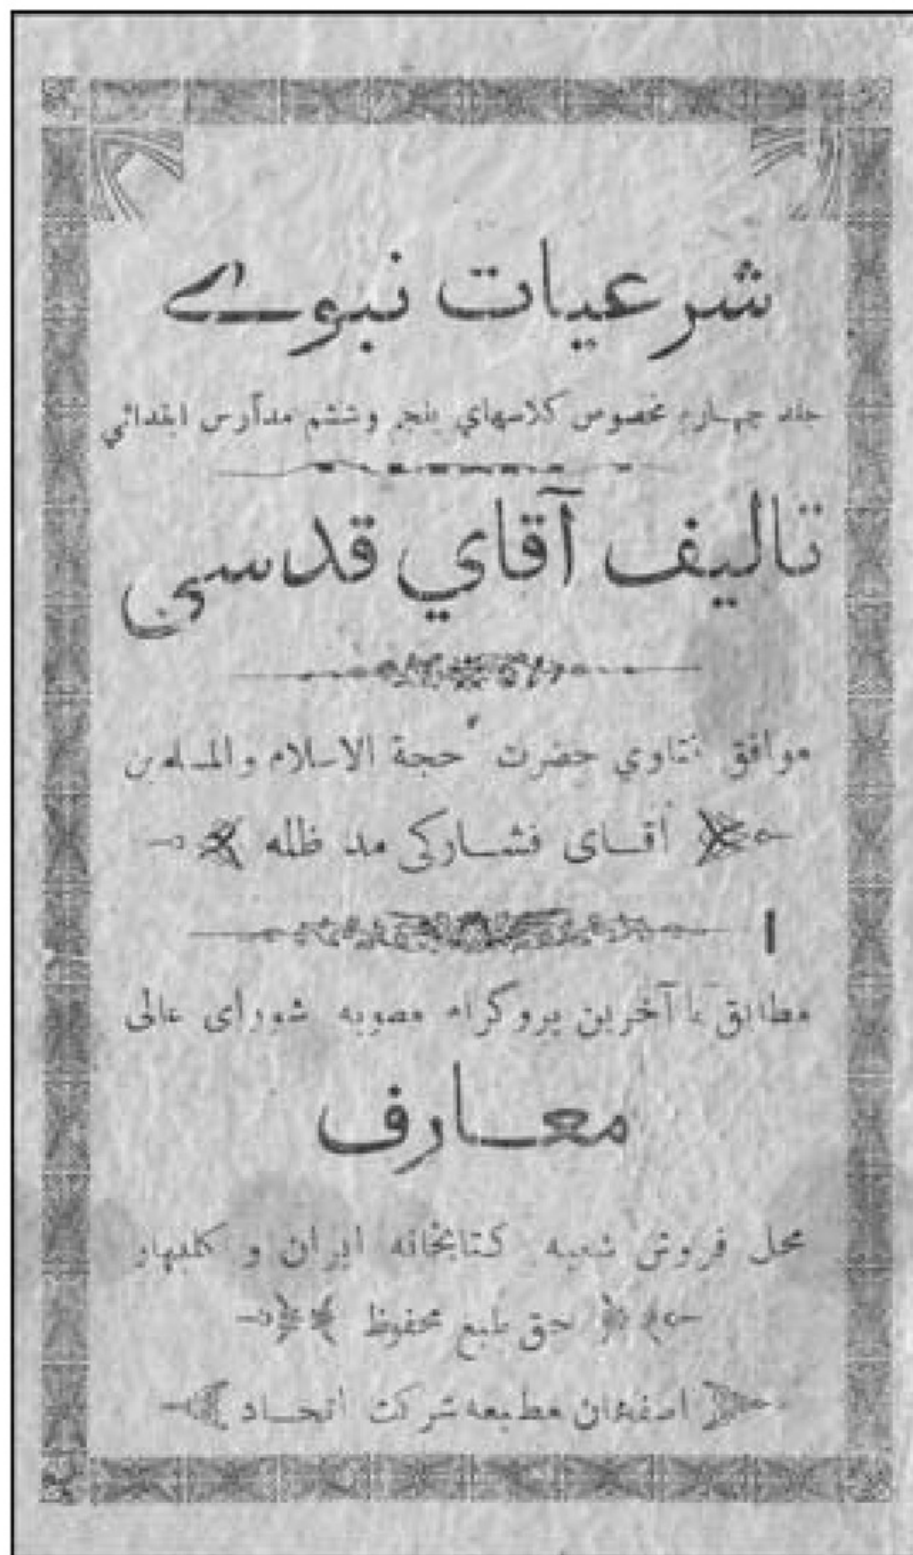 شرعیات نبوے
جلد چهارم مخصوص کلاسهاي پنجم وششم مدارس ابتدائي
تالیف آقاي قدسی
موافق فتاوي حضرت حجة الاسلام والمسلمین
آقـای فشـارکی مد ظله
مطابق با آخرین پروگرام مصوبه شورای عالی
معـارف
محل فروش شعبه کتابخانه ایران و
حق طبع محفوظ
اصفهان مطبعه شرکت اتحـاد